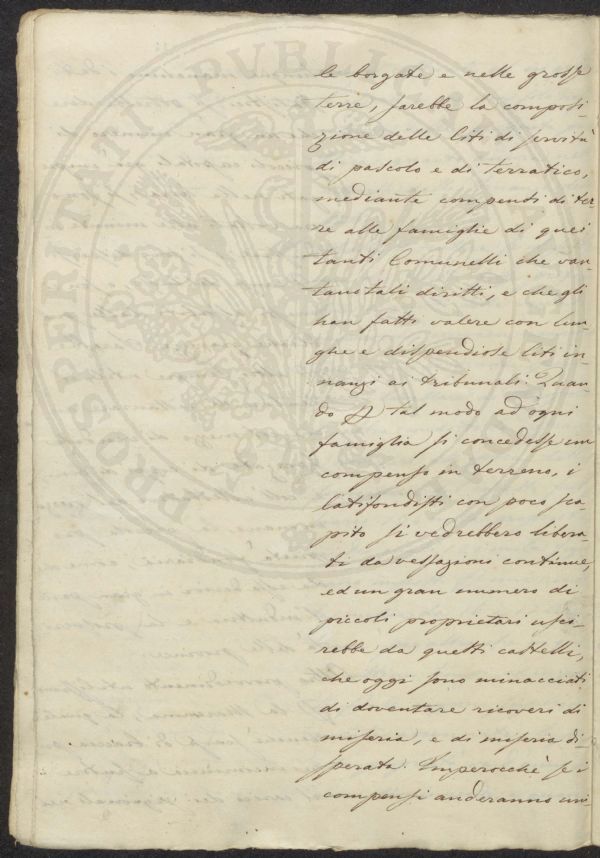 PROSPERITATI PVBLICAE
le borgate e nelle grosse
terre, sarebbe la composi-
zione delle liti di servitù
di pascolo e di terratico,
mediante compensi di ter-
re alle famiglie di quei
tanti Comunelli che van-
tano tali diritti, e che gli
han fatti valere con lun-
ghe e dispendiose liti in-
nanzi ai tribunali. Quan-
do tal modo ad ogni
famiglia si concedesse un
compenso in terreno, i
latifondisti con poco sca-
pito si vedrebbero libera-
ti da vessazioni continue,
ed un gran numero di
piccoli proprietari usci-
rebbe da quelli castelli,
che oggi sono minacciati
di doventare ricoveri di
miseria, e di miseria di-
sperata. Imperocchè se i
compensi anderanno uni-